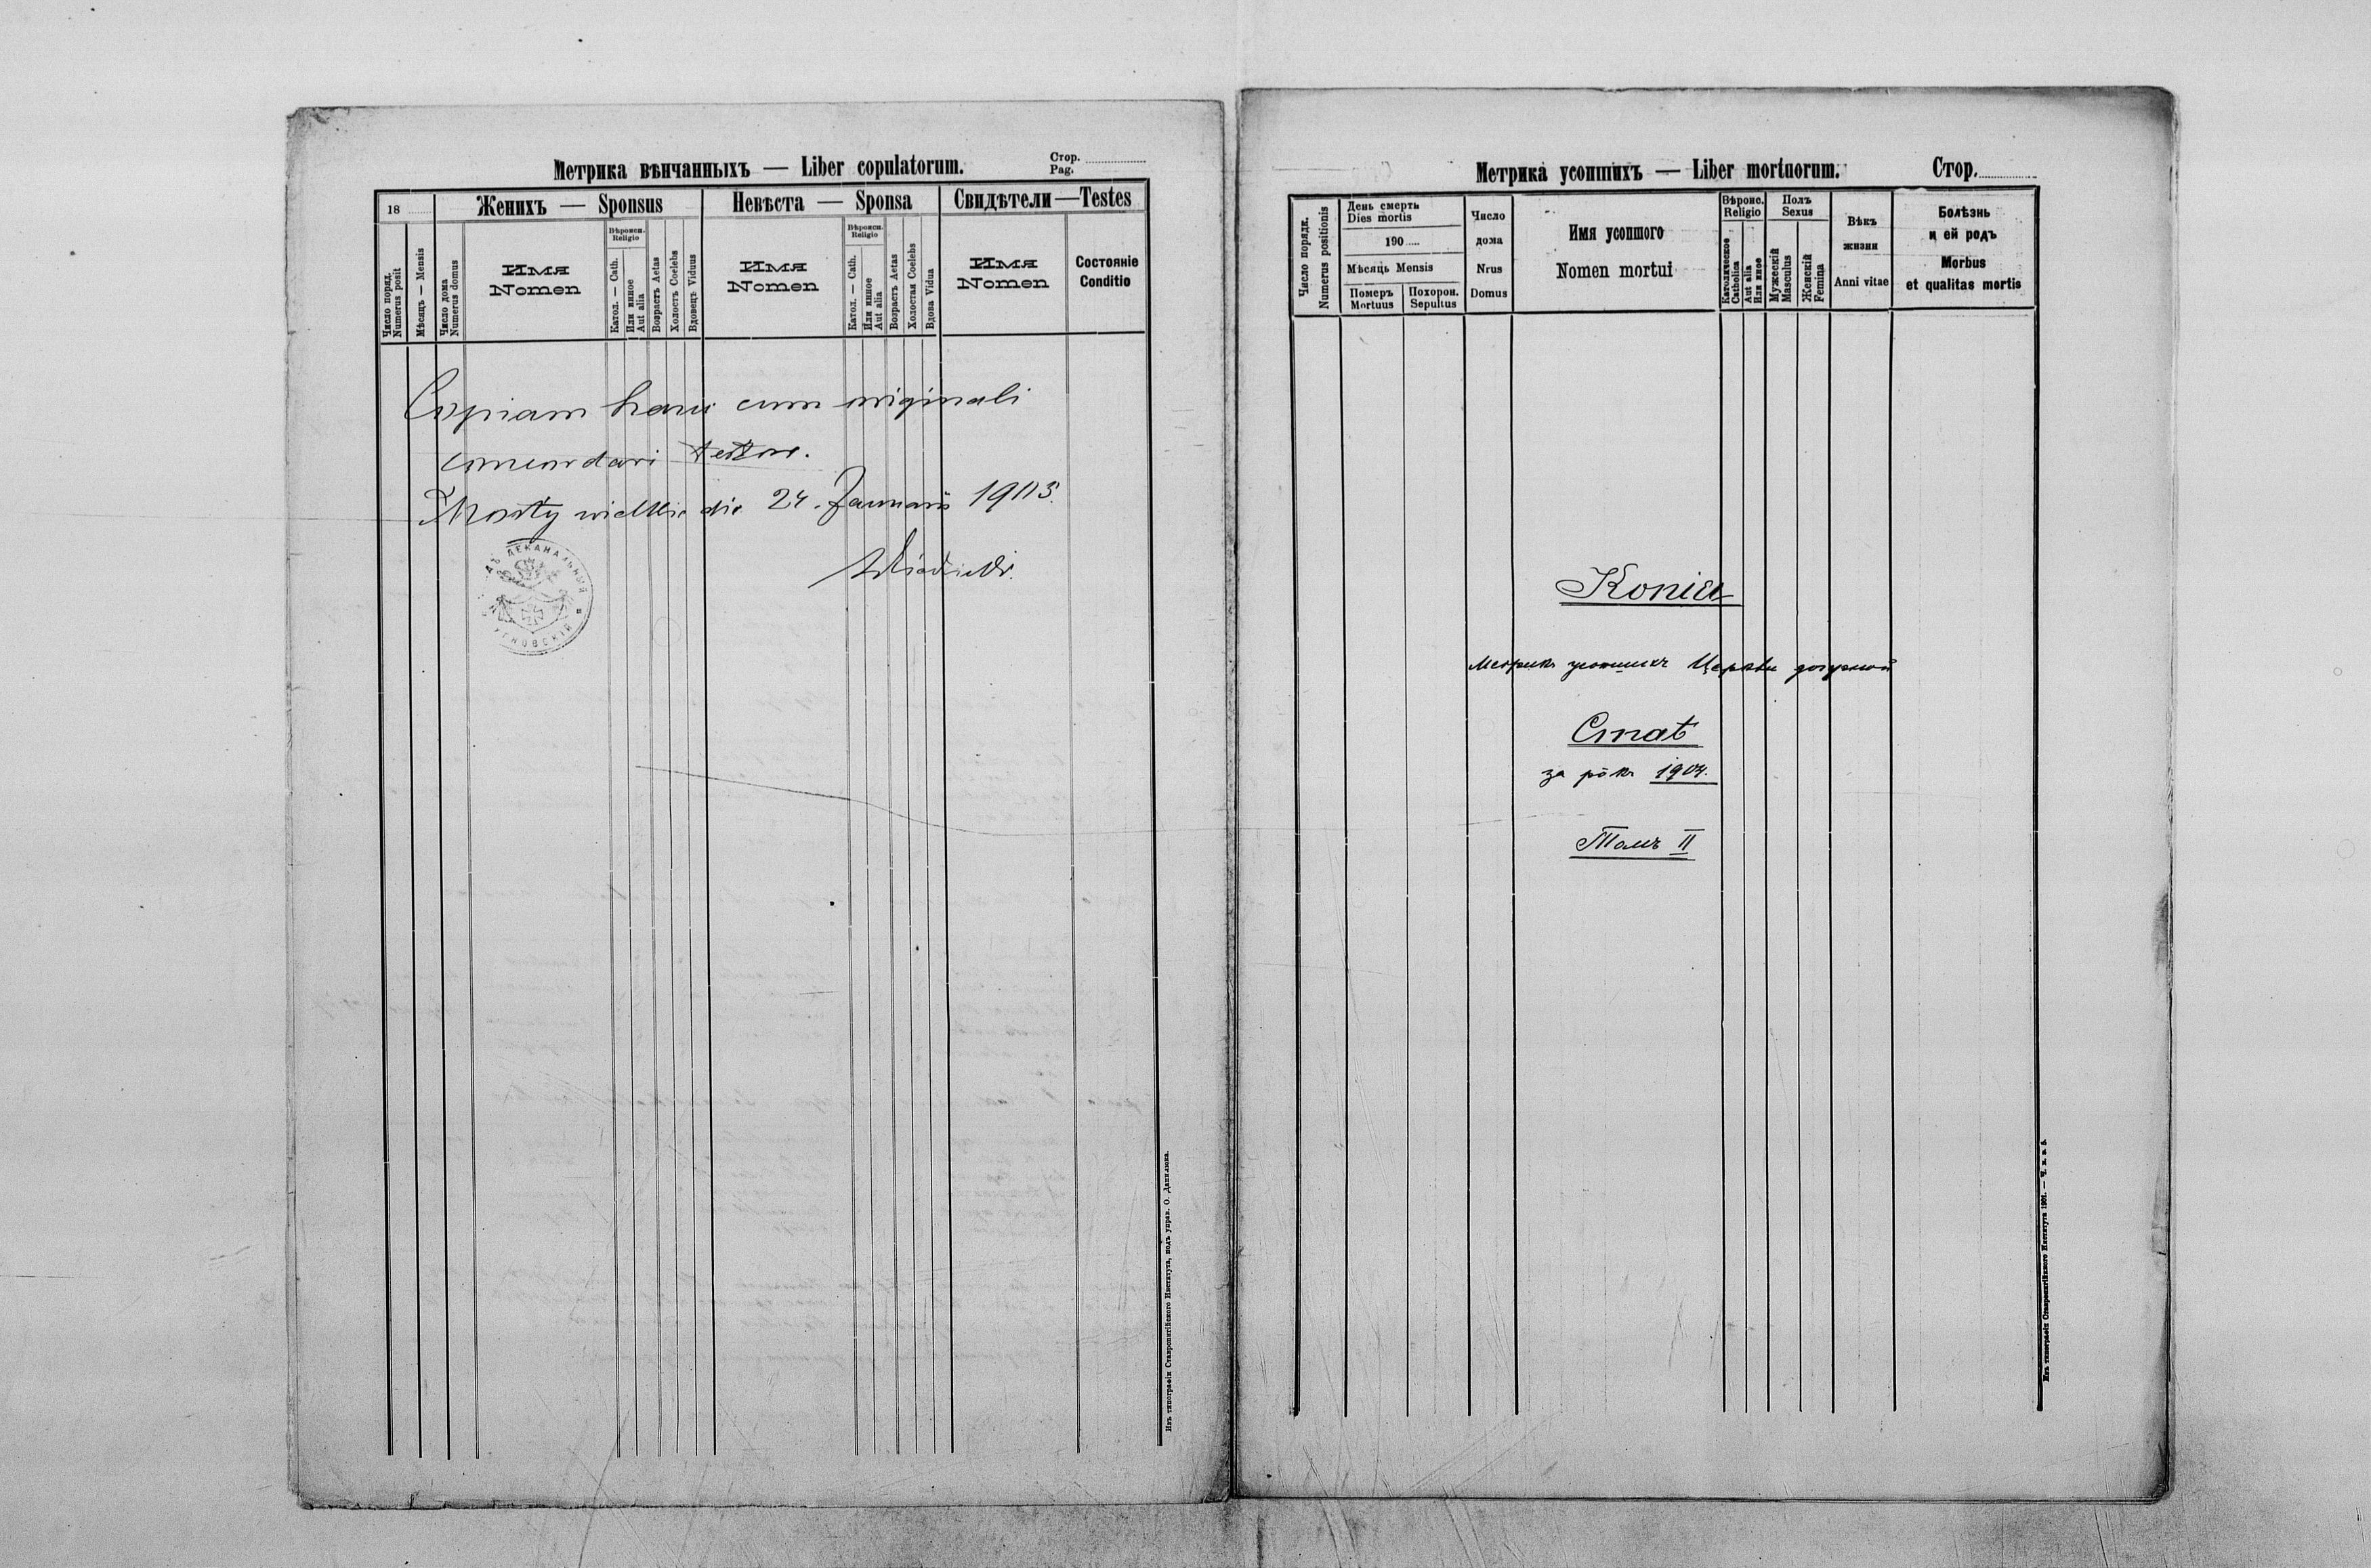 Метрика вѣнчанныхъ — Liber copulatorum.
Стор.
Pag.
18
Женихъ — Sponsus
Невѣста — Sponsa
Свидѣтели — Testes
Число поряд.
Numerus posit
Мѣсяцъ — Mensis
Число дома
Numerus domus
Имя
Nomen
Вѣроисп.
Religio
Катол. — Cath.
Или инное
Aut alia
Возрастъ Aetas
Холостъ Coelebs
Вдовецъ Viduus
Имя
Nomen
Вѣроисп.
Religio
Катол. — Cath.
Или инное
Aut alia
Возрастъ Aetas
Холостая Coelebs
Вдова Vidua
Имя
Nomen
Состояніе
Conditio
Copiam hanc cum originali
concordari testor.
Mosty wielkie die 24. Januarii 1905.
ДЕКАНАЛЬНЫЙ
УГНОВСКІЙ
Изъ типографіи Ставропигійского Института, подъ управ. О. Данилюка.
Метрика усопшихъ — Liber mortuorum.
Стор.
Число порядк.
Numerus positionis
День смерть
Dies mortis
190
Мѣсяць Mensis
Померъ
Mortuus
Похорон.
Sepultus
Число
дома
Nrus
Domus
Имя усопшого
Nomen mortui
Вѣроис.
Religio
Католическое
Catholica
Aut alia
Или иное
Полъ
Sexus
Мужескій
Masculus
Женскій
Femina
Вѣкъ
жизни
Anni vitae
Болѣзнь
и ей родъ
Morbus
et qualitas mortis
Копія
Метрик усопших Церкви
Стаѣ
за рôкъ 1904.
Томъ II
Изъ типографіи Ставропигійского Института 1901. — Ч. з. а 5.